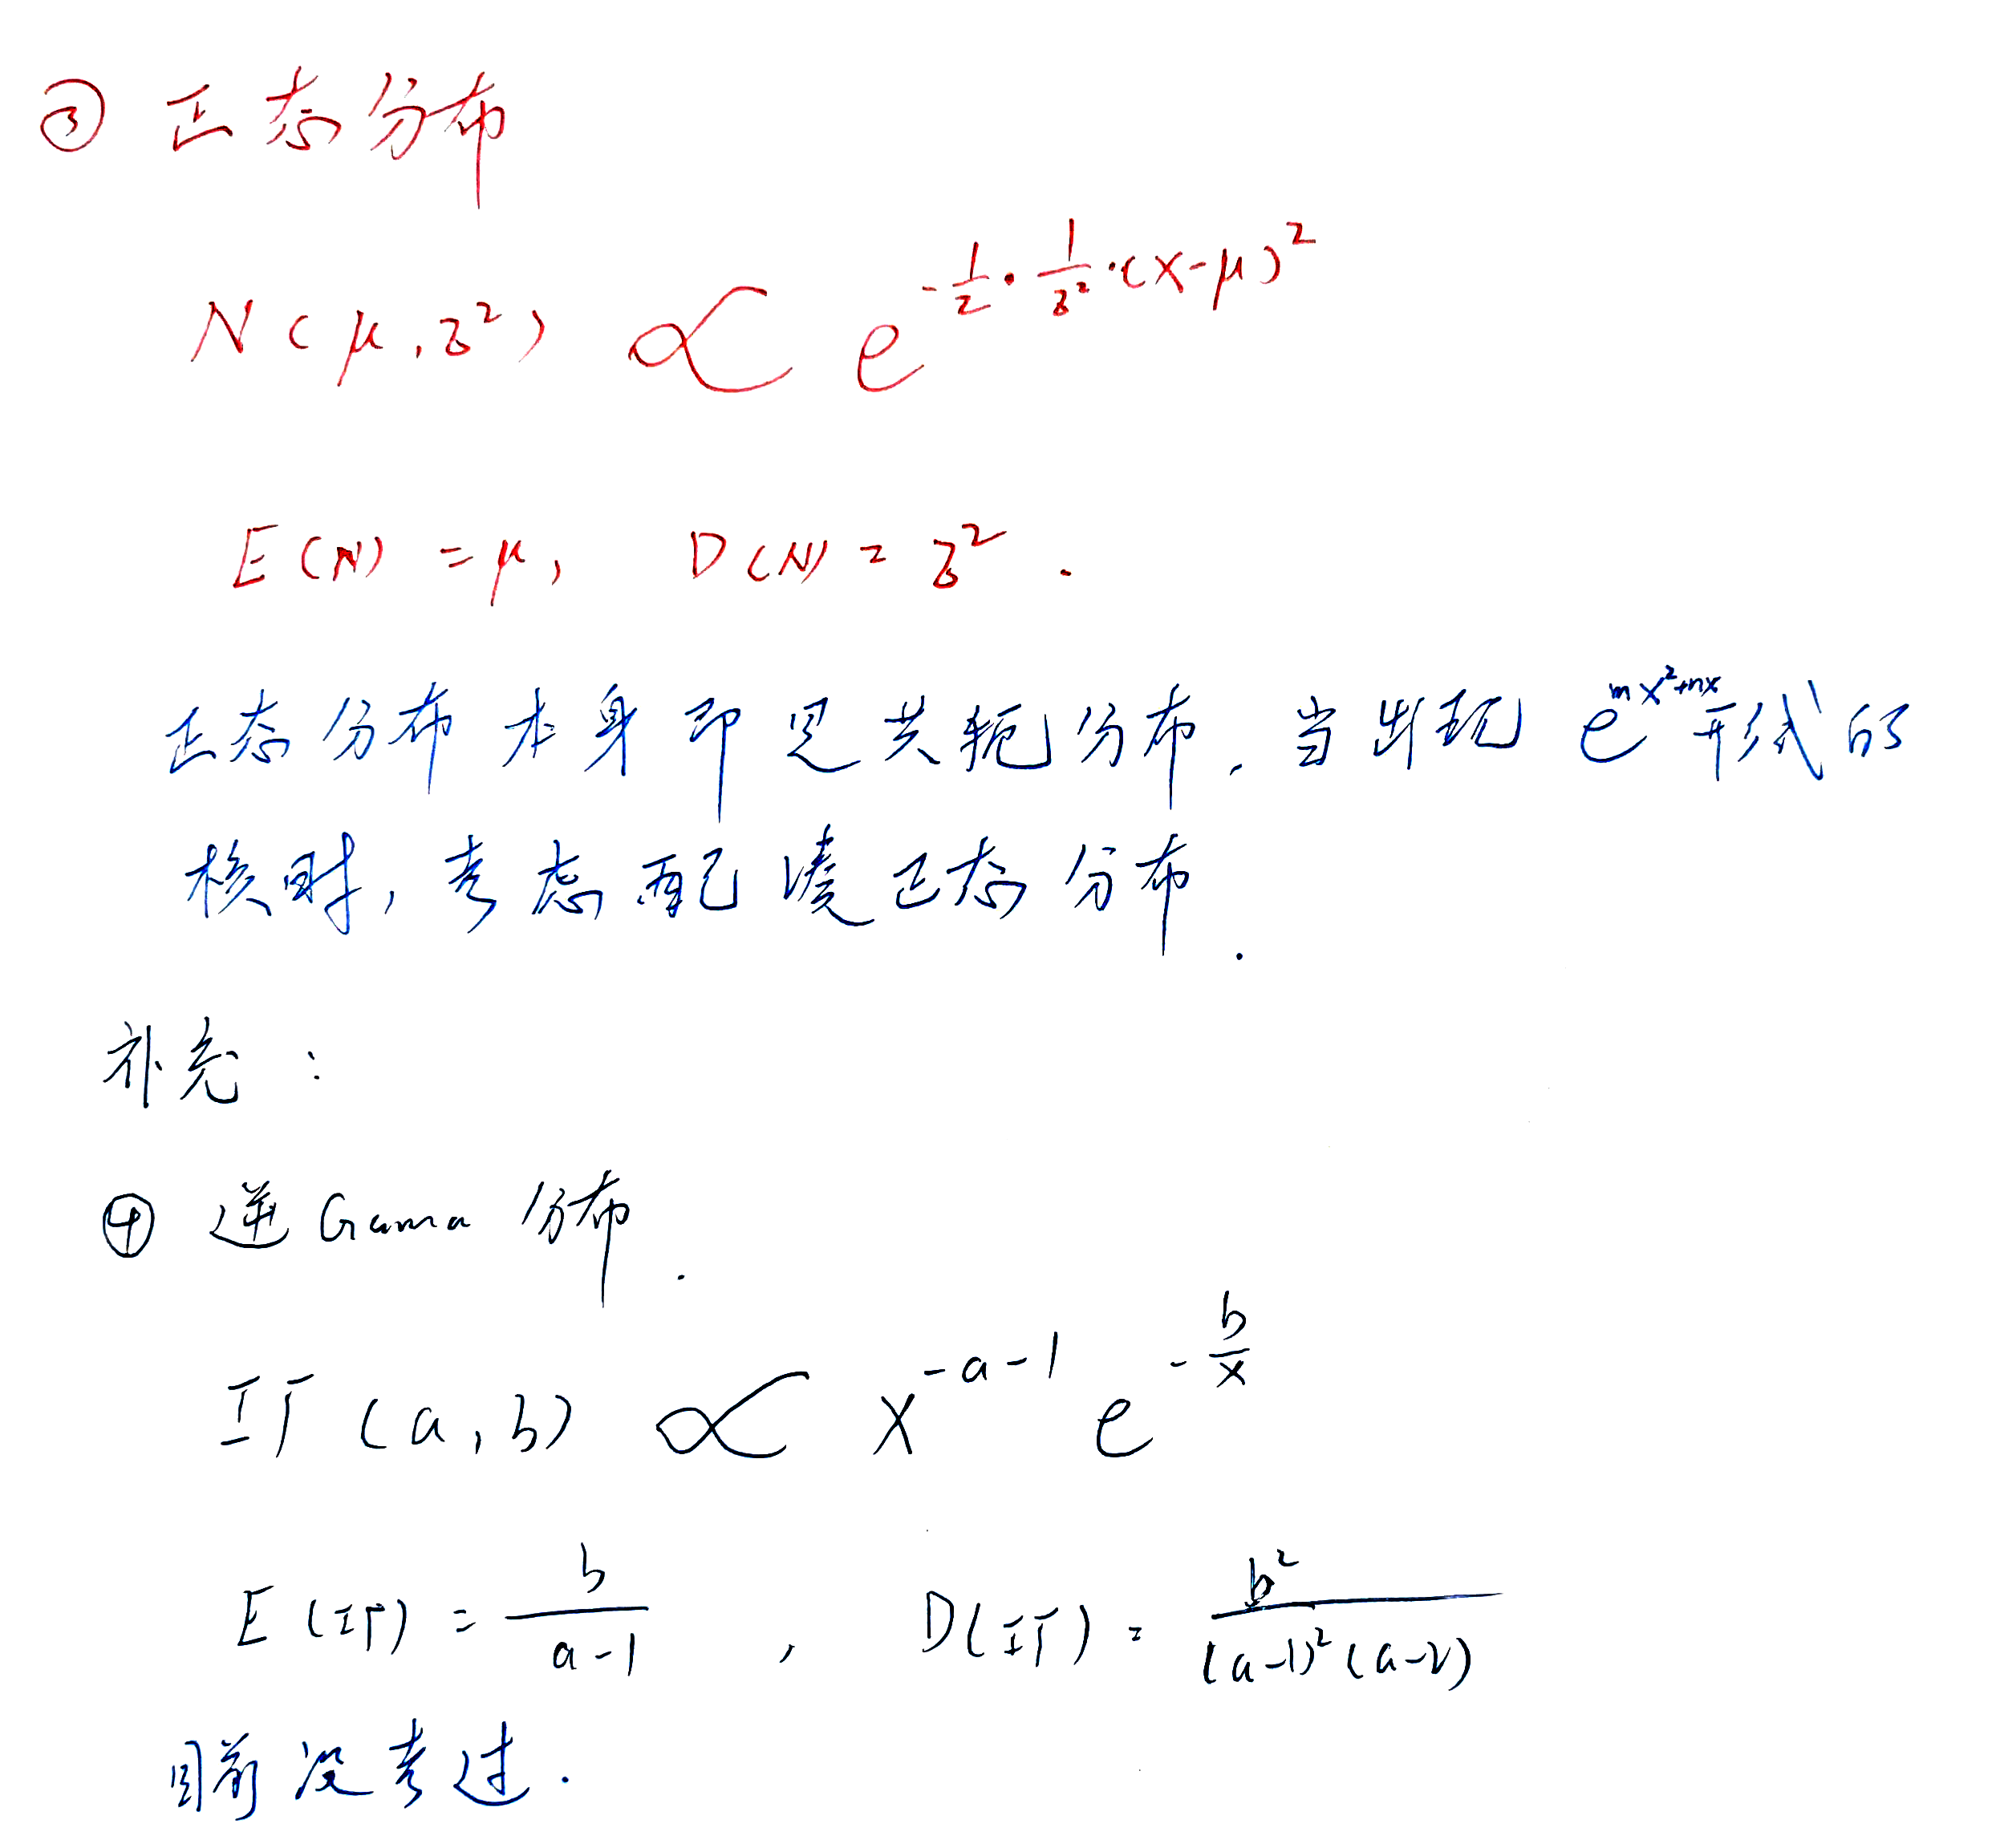 ③ 正态分布
N(μ,σ²) ∝ e^{-\frac{1}{2}·\frac{1}{σ²}·(x-μ)²}
E(N)=μ, D(N)=σ².
正态分布本身即是共轭分布.当出现 e^{mx²+nx} 形式的
核时,考虑配凑正态分布.
补充:
④ 逆Gama分布.
IΓ(a,b) ∝ x^{-a-1} e^{-\frac{b}{x}}
E(IΓ)=\frac{b}{a-1}, D(IΓ)=\frac{b²}{(a-1)²(a-2)}
目前没考过.